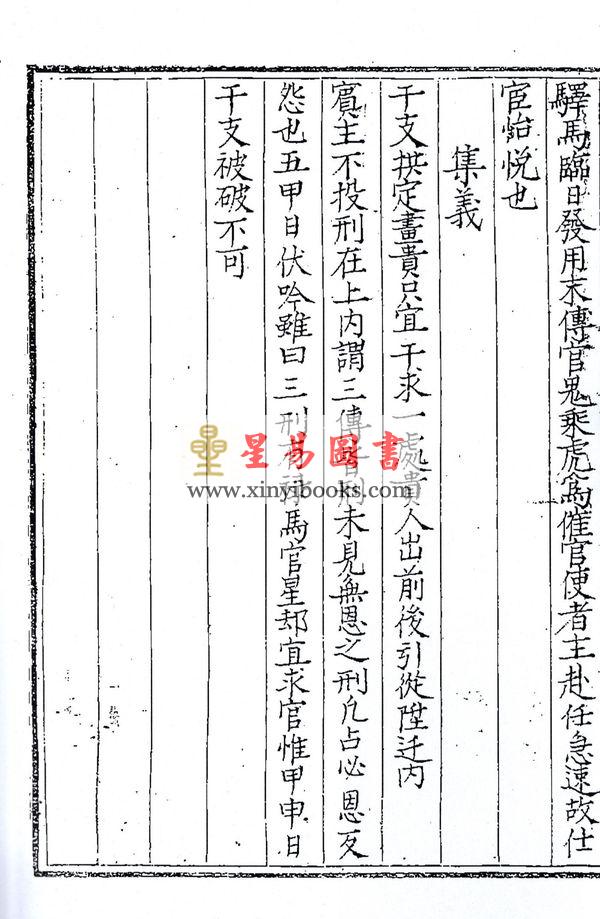 驛馬臨日發用末傳官鬼乘虎為催官使者主赴任急速故仕
宦怡悅也
集義
干支拱定晝貴只宜干求一處貴人出前後引從陞迁內
賓主不投刑在上內謂三傳皆刑未見無恩之刑凢占必恩反
怨也五甲日伏吟雖曰三刑有祿馬官星却宜求官惟甲申日
干支被破不可
星易圖書
www.xinyibooks.com